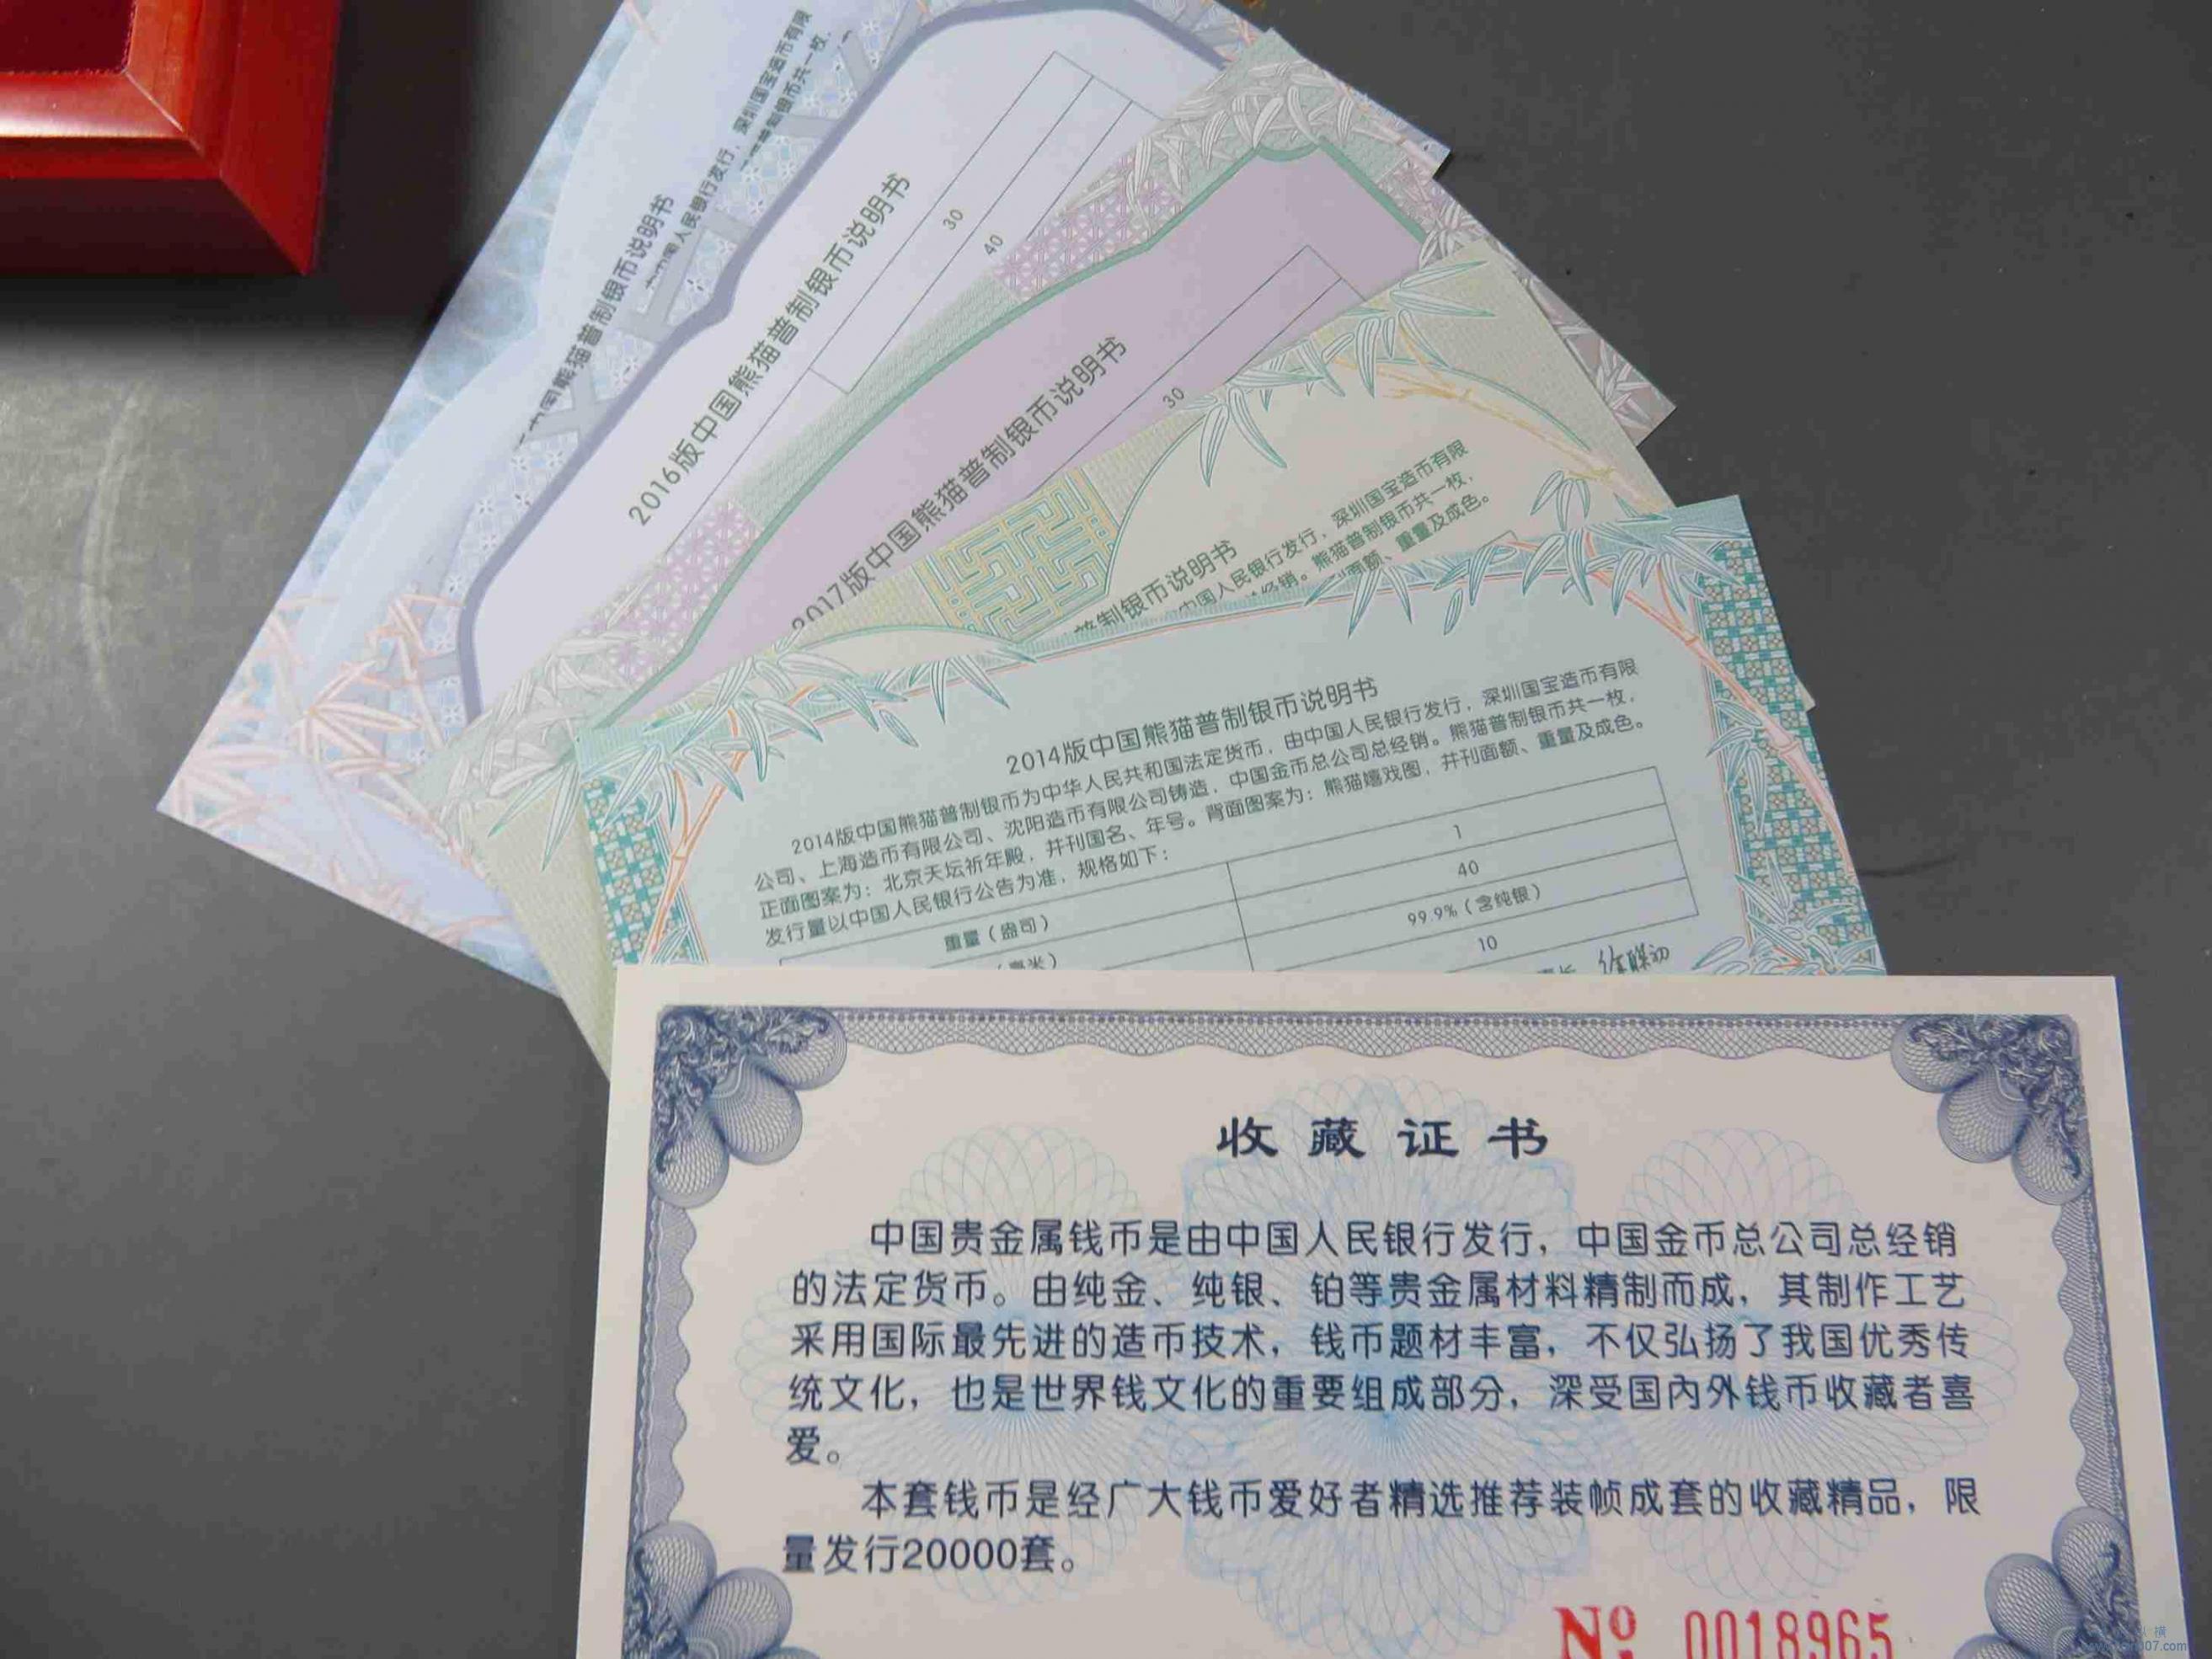 中国熊猫普制银币说明书
中国人民银行发行，深圳国宝造币有限
普制银币共一枚，
2016版中国熊猫普制银币说明书
30
40
2017版中国熊猫普制银币说明书
30
普制银币说明书
中国人民银行发行，深圳国宝造币有限
经销。熊猫普制银币共一枚，
面额、重量及成色。
2014版中国熊猫普制银币说明书
2014版中国熊猫普制银币为中华人民共和国法定货币，由中国人民银行发行，深圳国宝造币有限
公司、上海造币有限公司、沈阳造币有限公司铸造，中国金币总公司总经销。熊猫普制银币共一枚，
正面图案为：北京天坛祈年殿，并刊国名、年号。背面图案为：熊猫嬉戏图，并刊面额、重量及成色。
发行量以中国人民银行公告为准，规格如下：
重量（盎司） 1
（毫米） 40
99.9%（含纯银）
10
收藏证书
中国贵金属钱币是由中国人民银行发行，中国金币总公司总经销
的法定货币。由纯金、纯银、铂等贵金属材料精制而成，其制作工艺
采用国际最先进的造币技术，钱币题材丰富，不仅弘扬了我国优秀传
统文化，也是世界钱文化的重要组成部分，深受国内外钱币收藏者喜
爱。
本套钱币是经广大钱币爱好者精选推荐装帧成套的收藏精品，限
量发行20000套。
No 0018965